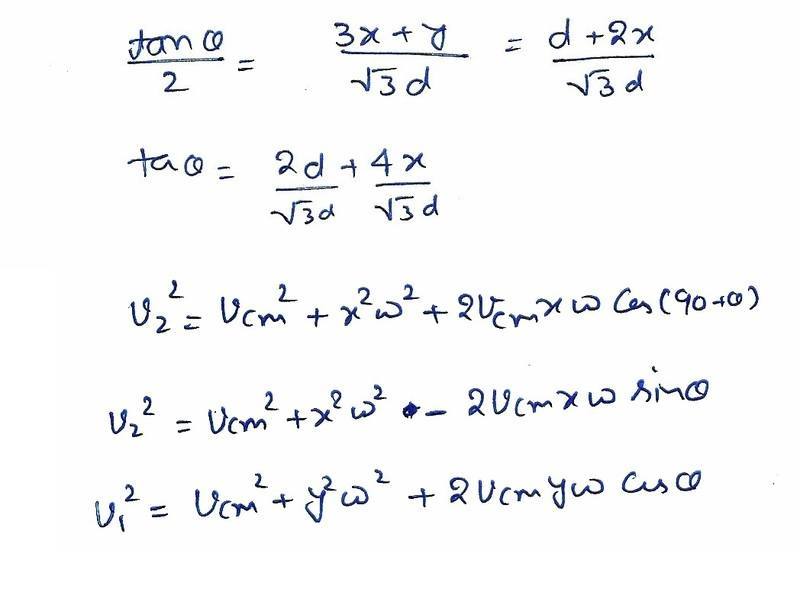 tanθ/2 = (3x + y)/(√3 d) = (d + 2x)/(√3 d)
taθ = 2d/(√3d) + 4x/(√3d)
v₂² = vcm² + x²ω² + 2vcm x ω Cos(90+θ)
v₂² = vcm² + x²ω² - 2vcm x ω sinθ
v₁² = vcm² + y²ω² + 2vcm yω Cosθ